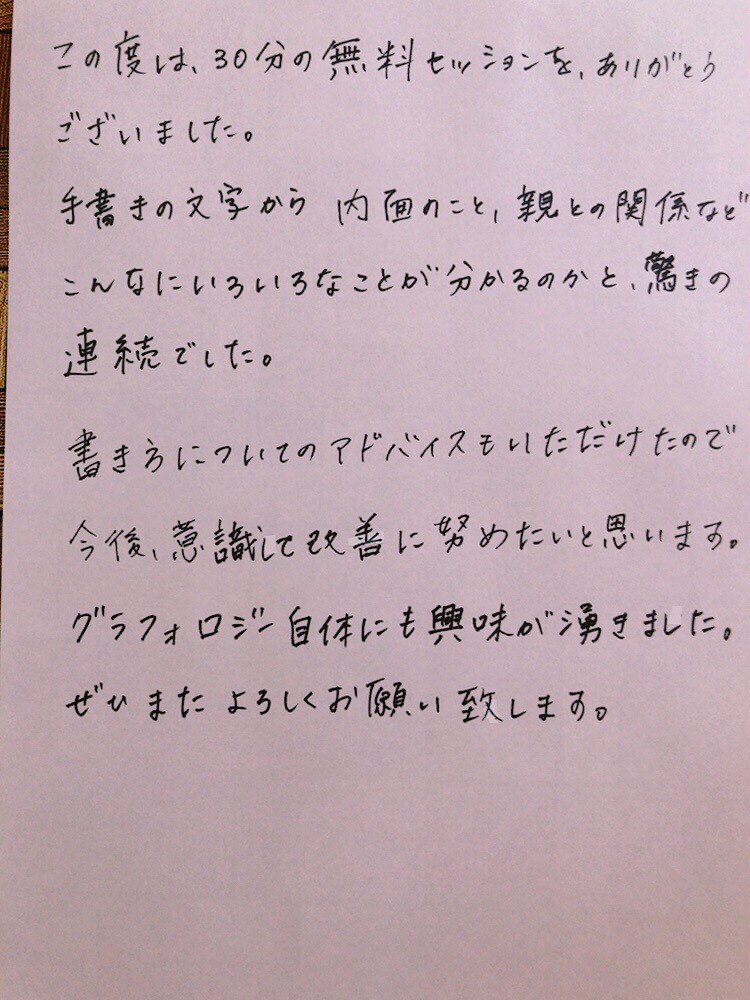 この度は、30分の無料セッションを、ありがとう
ございました。
手書きの文字から 内面のこと、親との関係など
こんなにいろいろなことが分かるのかと、驚きの
連続でした。
書き方についてのアドバイスもいただけたので
今後、意識して改善に努めたいと思います。
グラフォロジー自体にも興味が湧きました。
ぜひまたよろしくお願い致します。